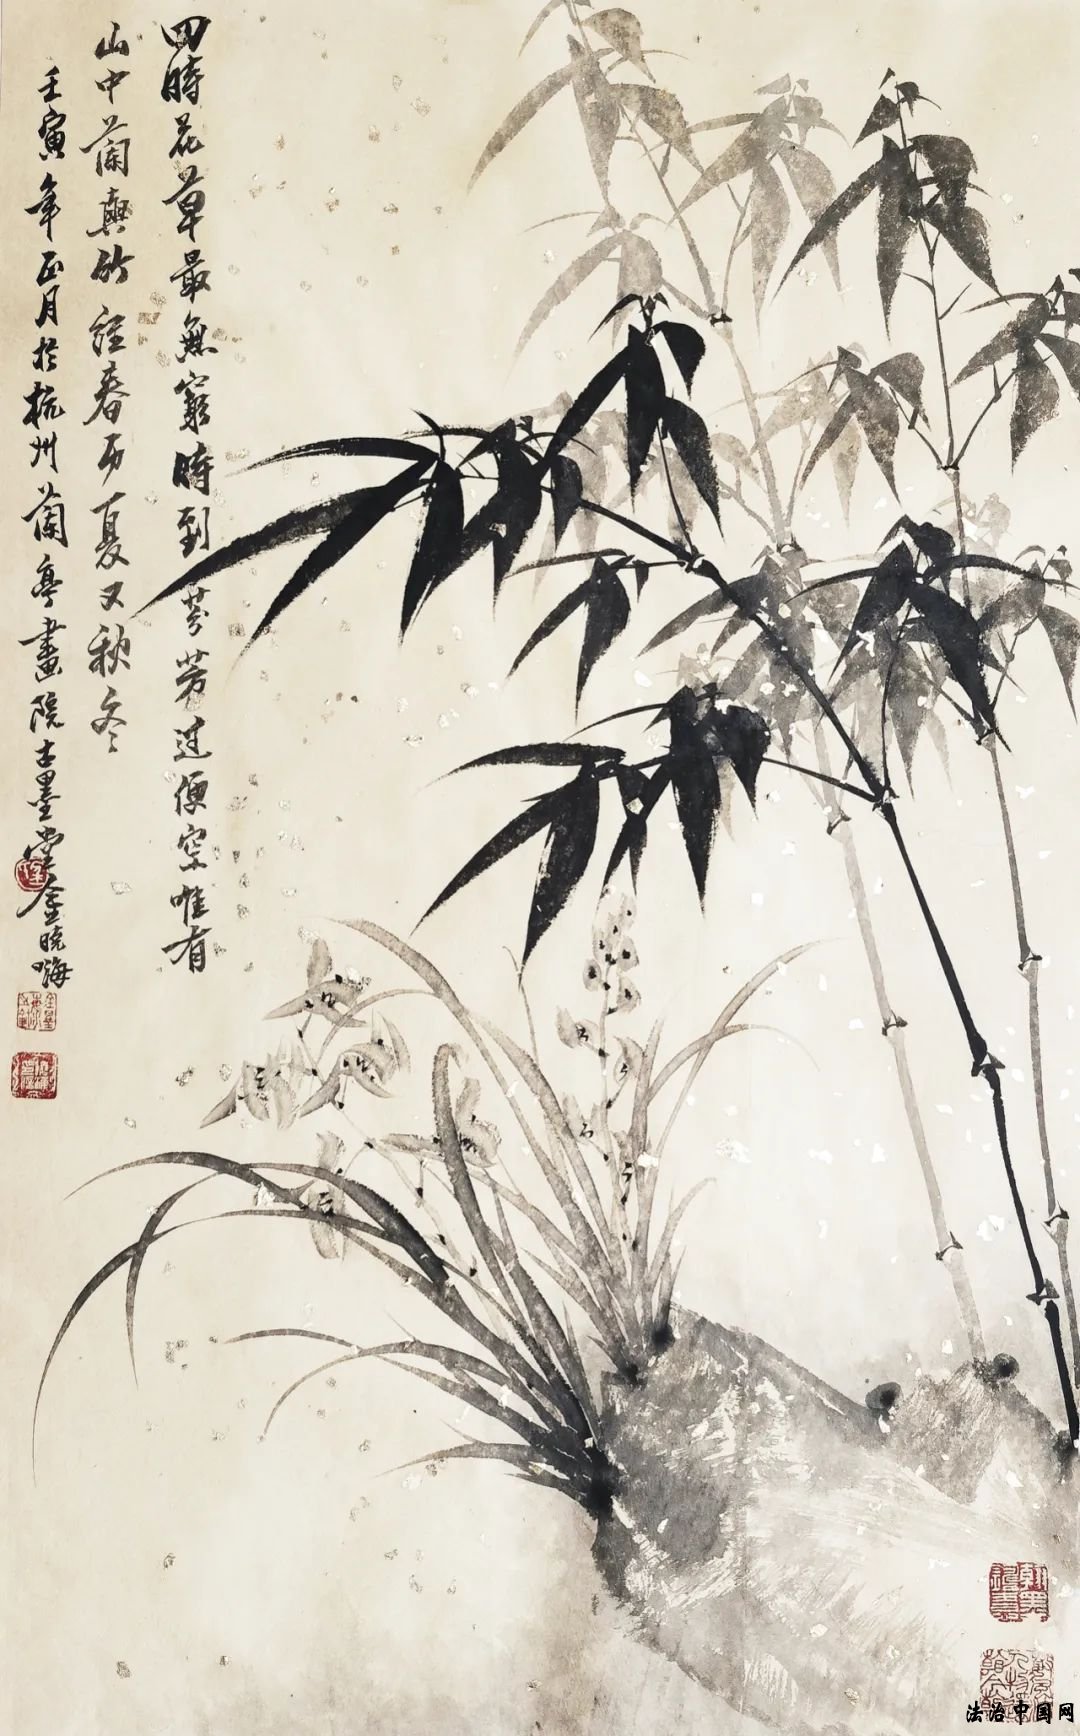 四時花草最無窮時到芬芳過便空唯有
山中蘭與竹經春历夏又秋冬
壬寅年正月於杭州蘭亭畫院古墨堂金曉海
法治中国网